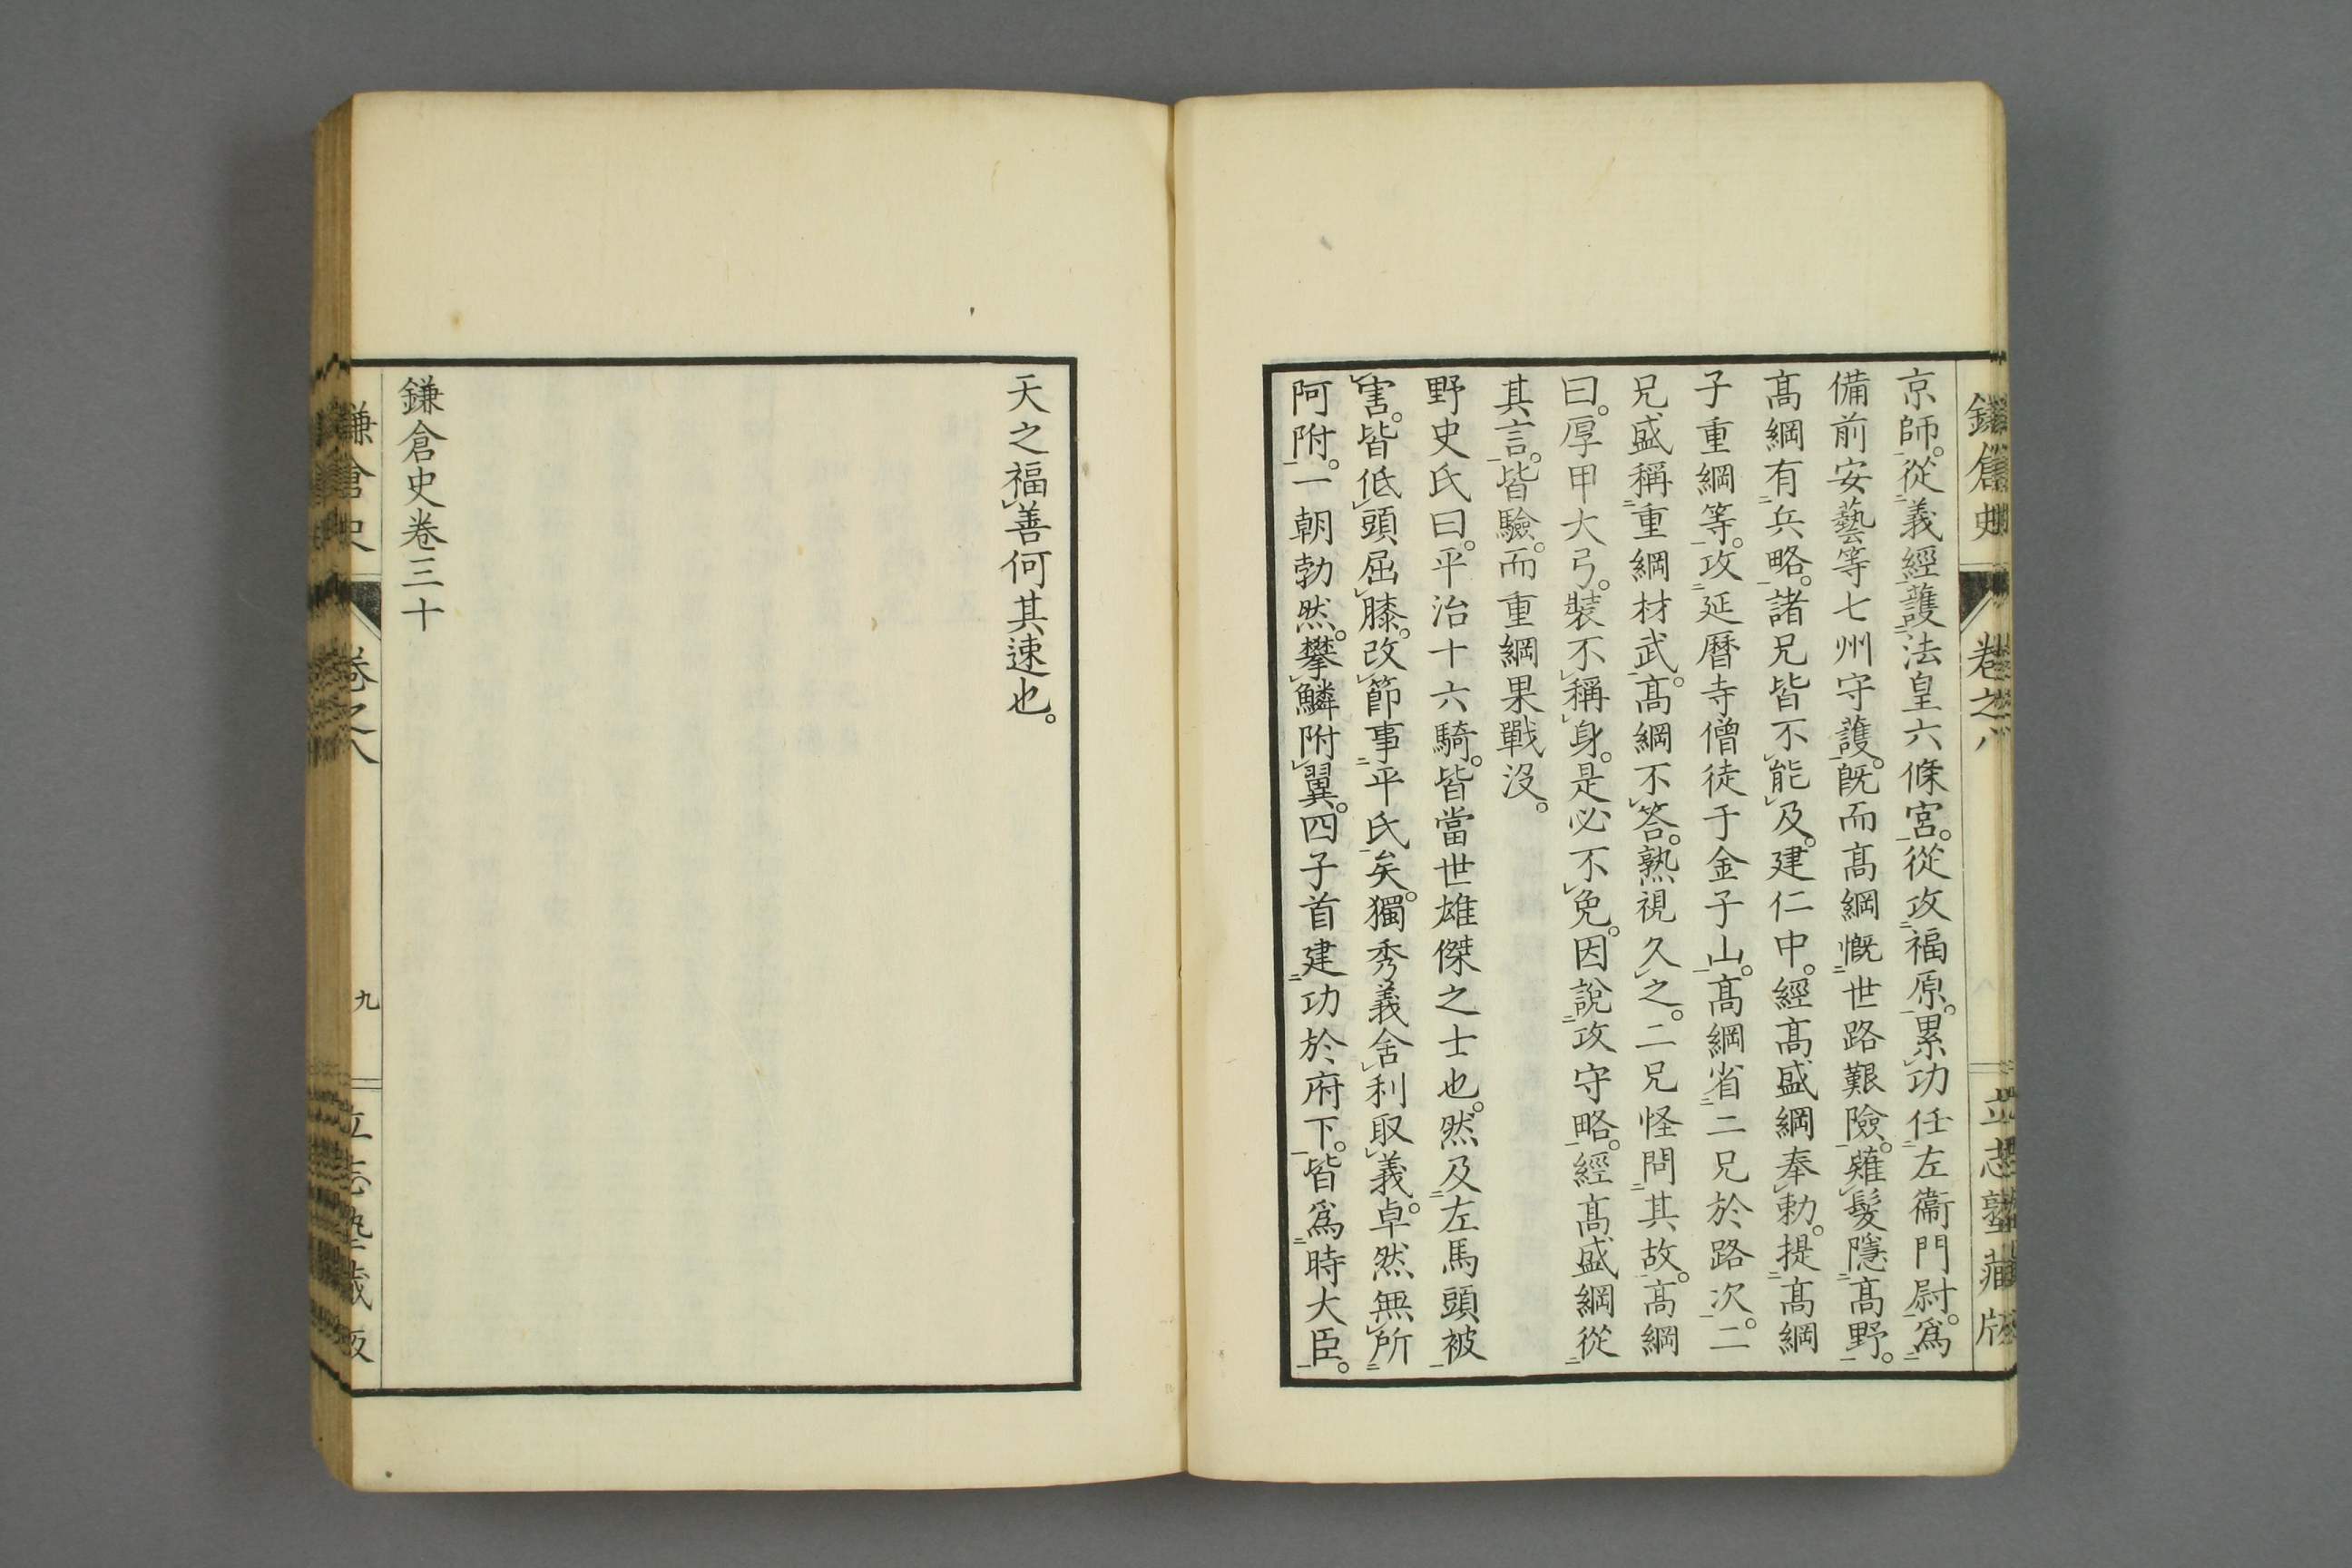 京師。從義經護法皇六條宮。從攻福原。累功任左衞門尉。爲
備前安藝等七州守護。既而高綱慨世路艱險。薙髮隱高野。
高綱有兵略。諸兄皆不能及。建仁中。經高盛綱奉勅。提高綱
子重綱等。攻延曆寺僧徒于金子山。高綱省二兄於路次。二
兄盛稱重綱材武。高綱不答。熟視久之。二兄怪問其故。高綱
曰。厚甲大弓。裝不稱身。是必不免。因說攻守略。經高盛綱從
其言。皆驗。而重綱果戰沒。
野史氏曰。平治十六騎。皆當世雄傑之士也。然及左馬頭被
害。皆低頭屈膝。改節事平氏矣。獨秀義舍利取義。卓然無所
阿附。一朝勃然。攀鱗附翼。四子首建功於府下。皆爲時大臣。
天之福善何其速也。
鎌倉史卷三十
鎌倉史
卷之八
九